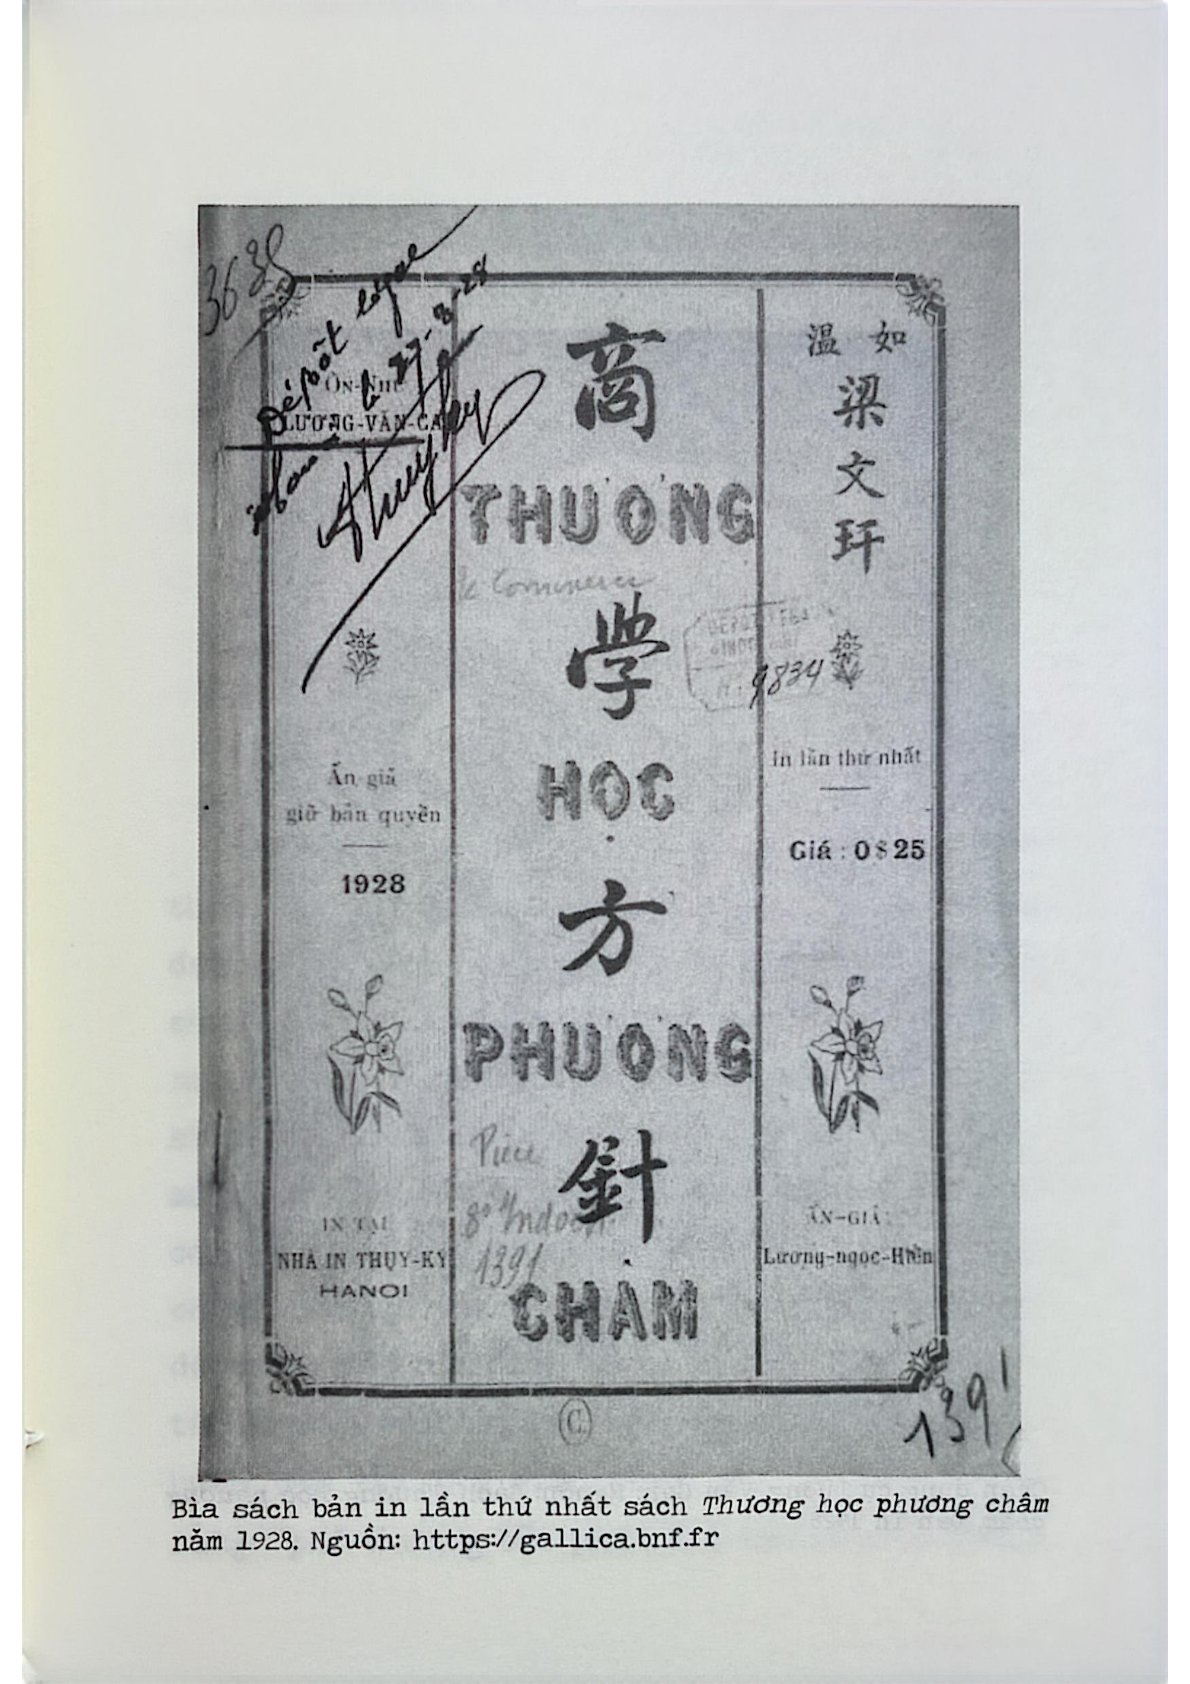 3638
Dépôt légal
27-3-28
Thuyky
ÔN-NHƯ
LƯƠNG-VĂN-CAN
Ấn giả
giữ bản quyền
1928
IN TẠI
NHÀ IN THỤY-KÝ
HANOI
商
THƯƠNG
le Commerce
学
HỌC
方
PHƯƠNG
Pièce
8° Indoch.
1391
針
CHÂM
如 温
梁
文
玕
9834
In lần thứ nhất
Giá : 0$25
ẤN-GIẢ:
Lương-ngọc-Hiền
C.
1391
Bìa sách bản in lần thứ nhất sách Thương học phương châm
năm 1928. Nguồn: https://gallica.bnf.fr